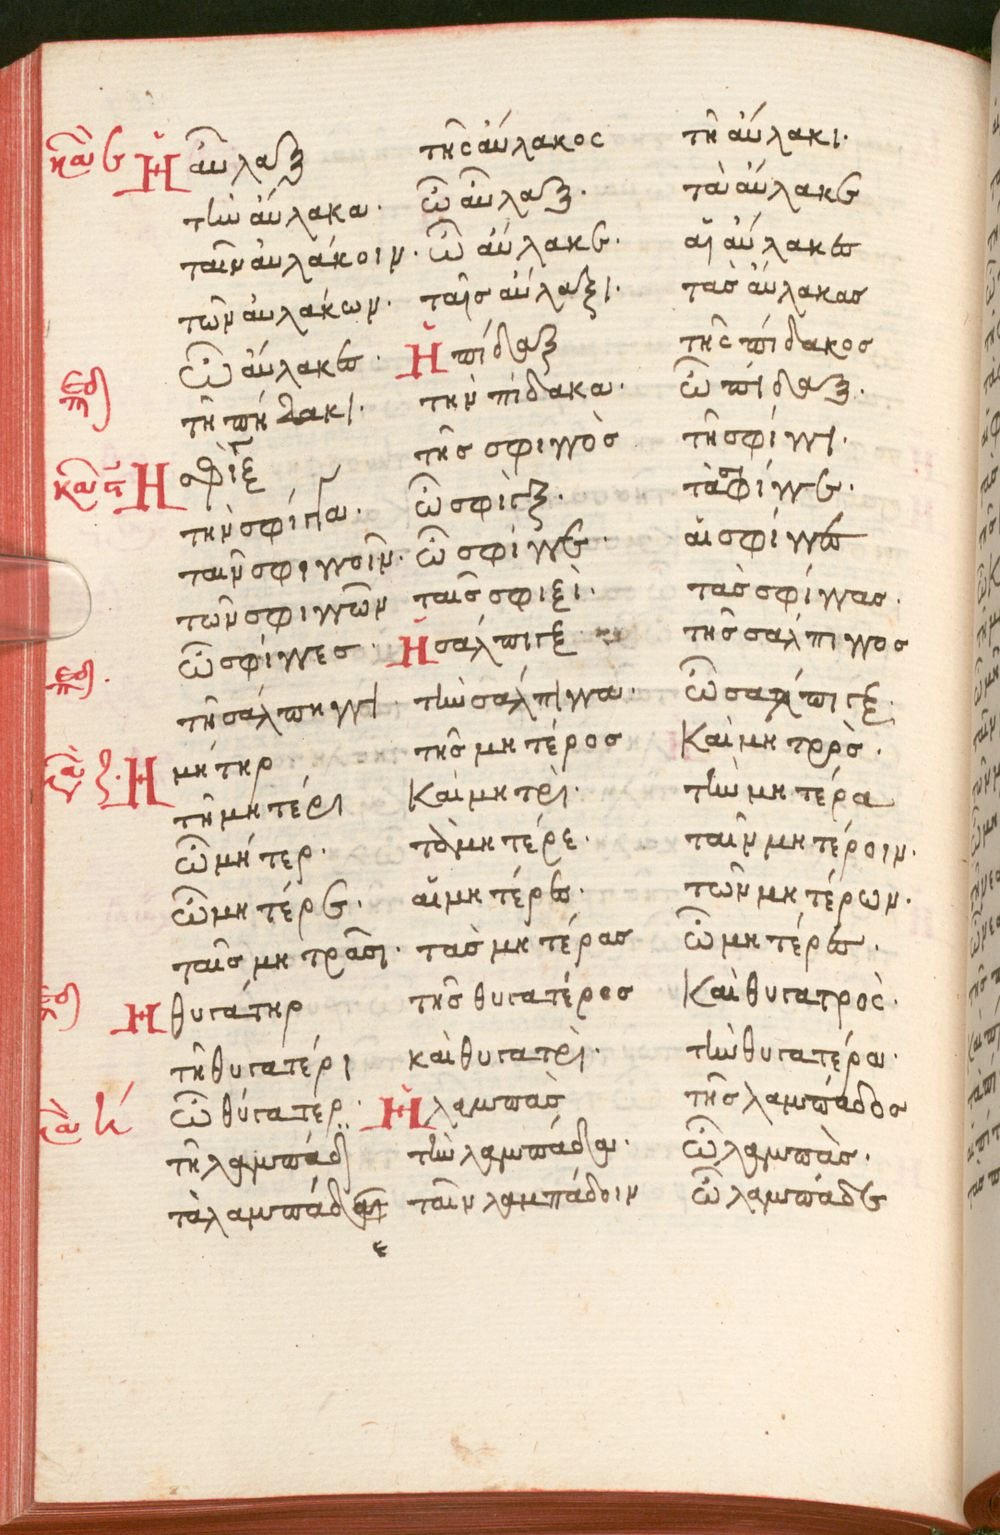 Ἡ αὖλαξ τῆς αὔλακος τῆ αὔλακι·
τὴν αὔλακα· ὦ αὖλαξ· τὰ αὔλακε
ταῖν αὐλάκοιν· ὦ αὔλακε· αἱ αὔλακες
τῶν αὐλάκων· ταῖς αὔλαξι· τὰς αὔλακας
ὦ αὔλακες· Ἡ πίδαξ τῆς πίδακος
τῆ πήδακι· τὴν πίδακα· ὦ πίδαξ·
Ἡ σφὶγξ τῆς σφιγγὸς τῆ σφίγγι·
τὴν σφίγγα· ὦ σφὶγξ· τὰ σφίγγε·
ταῖν σφιγγοῖν· ὦ σφίγγε· αἱ σφίγγες
τῶν σφιγγῶν ταῖς σφιξὶ· τὰς σφίγγας·
ὦ σφίγγες· Ἡ σάλπιγξ τῆς σάλπιγγος
τῆ σάλπηγγι τὴν σάλπιγγα· ὦ σάλπιγξ·
Ἡ μήτηρ τῆς μητέρος Καὶ μητρὸς·
τῆ μητέρι Καὶ μητρὶ· τὴν μητέρα
ὦ μήτερ· τὰ μητέρε· ταῖν μητέροιν·
ὦ μητέρε· αἱ μητέρες· τῶν μητέρων·
ταῖς μητρᾶσι· τὰς μητέρας ὦ μητέρες·
Ἡ θυγάτηρ τῆς θυγατέρος Καὶ θυγατρὸς·
τῆ θυγατέρι καὶ θυγατρὶ· τὴν θυγατέρα·
ὦ θύγατερ· Ἡ λαμπὰς τῆς λαμπάδος
τῆ λαμπάδι τὴν λαμπάδα· ὦ λαμπὰς·
τὰ λαμπάδε ταῖν λαμπάδοιν ὦ λαμπάδε